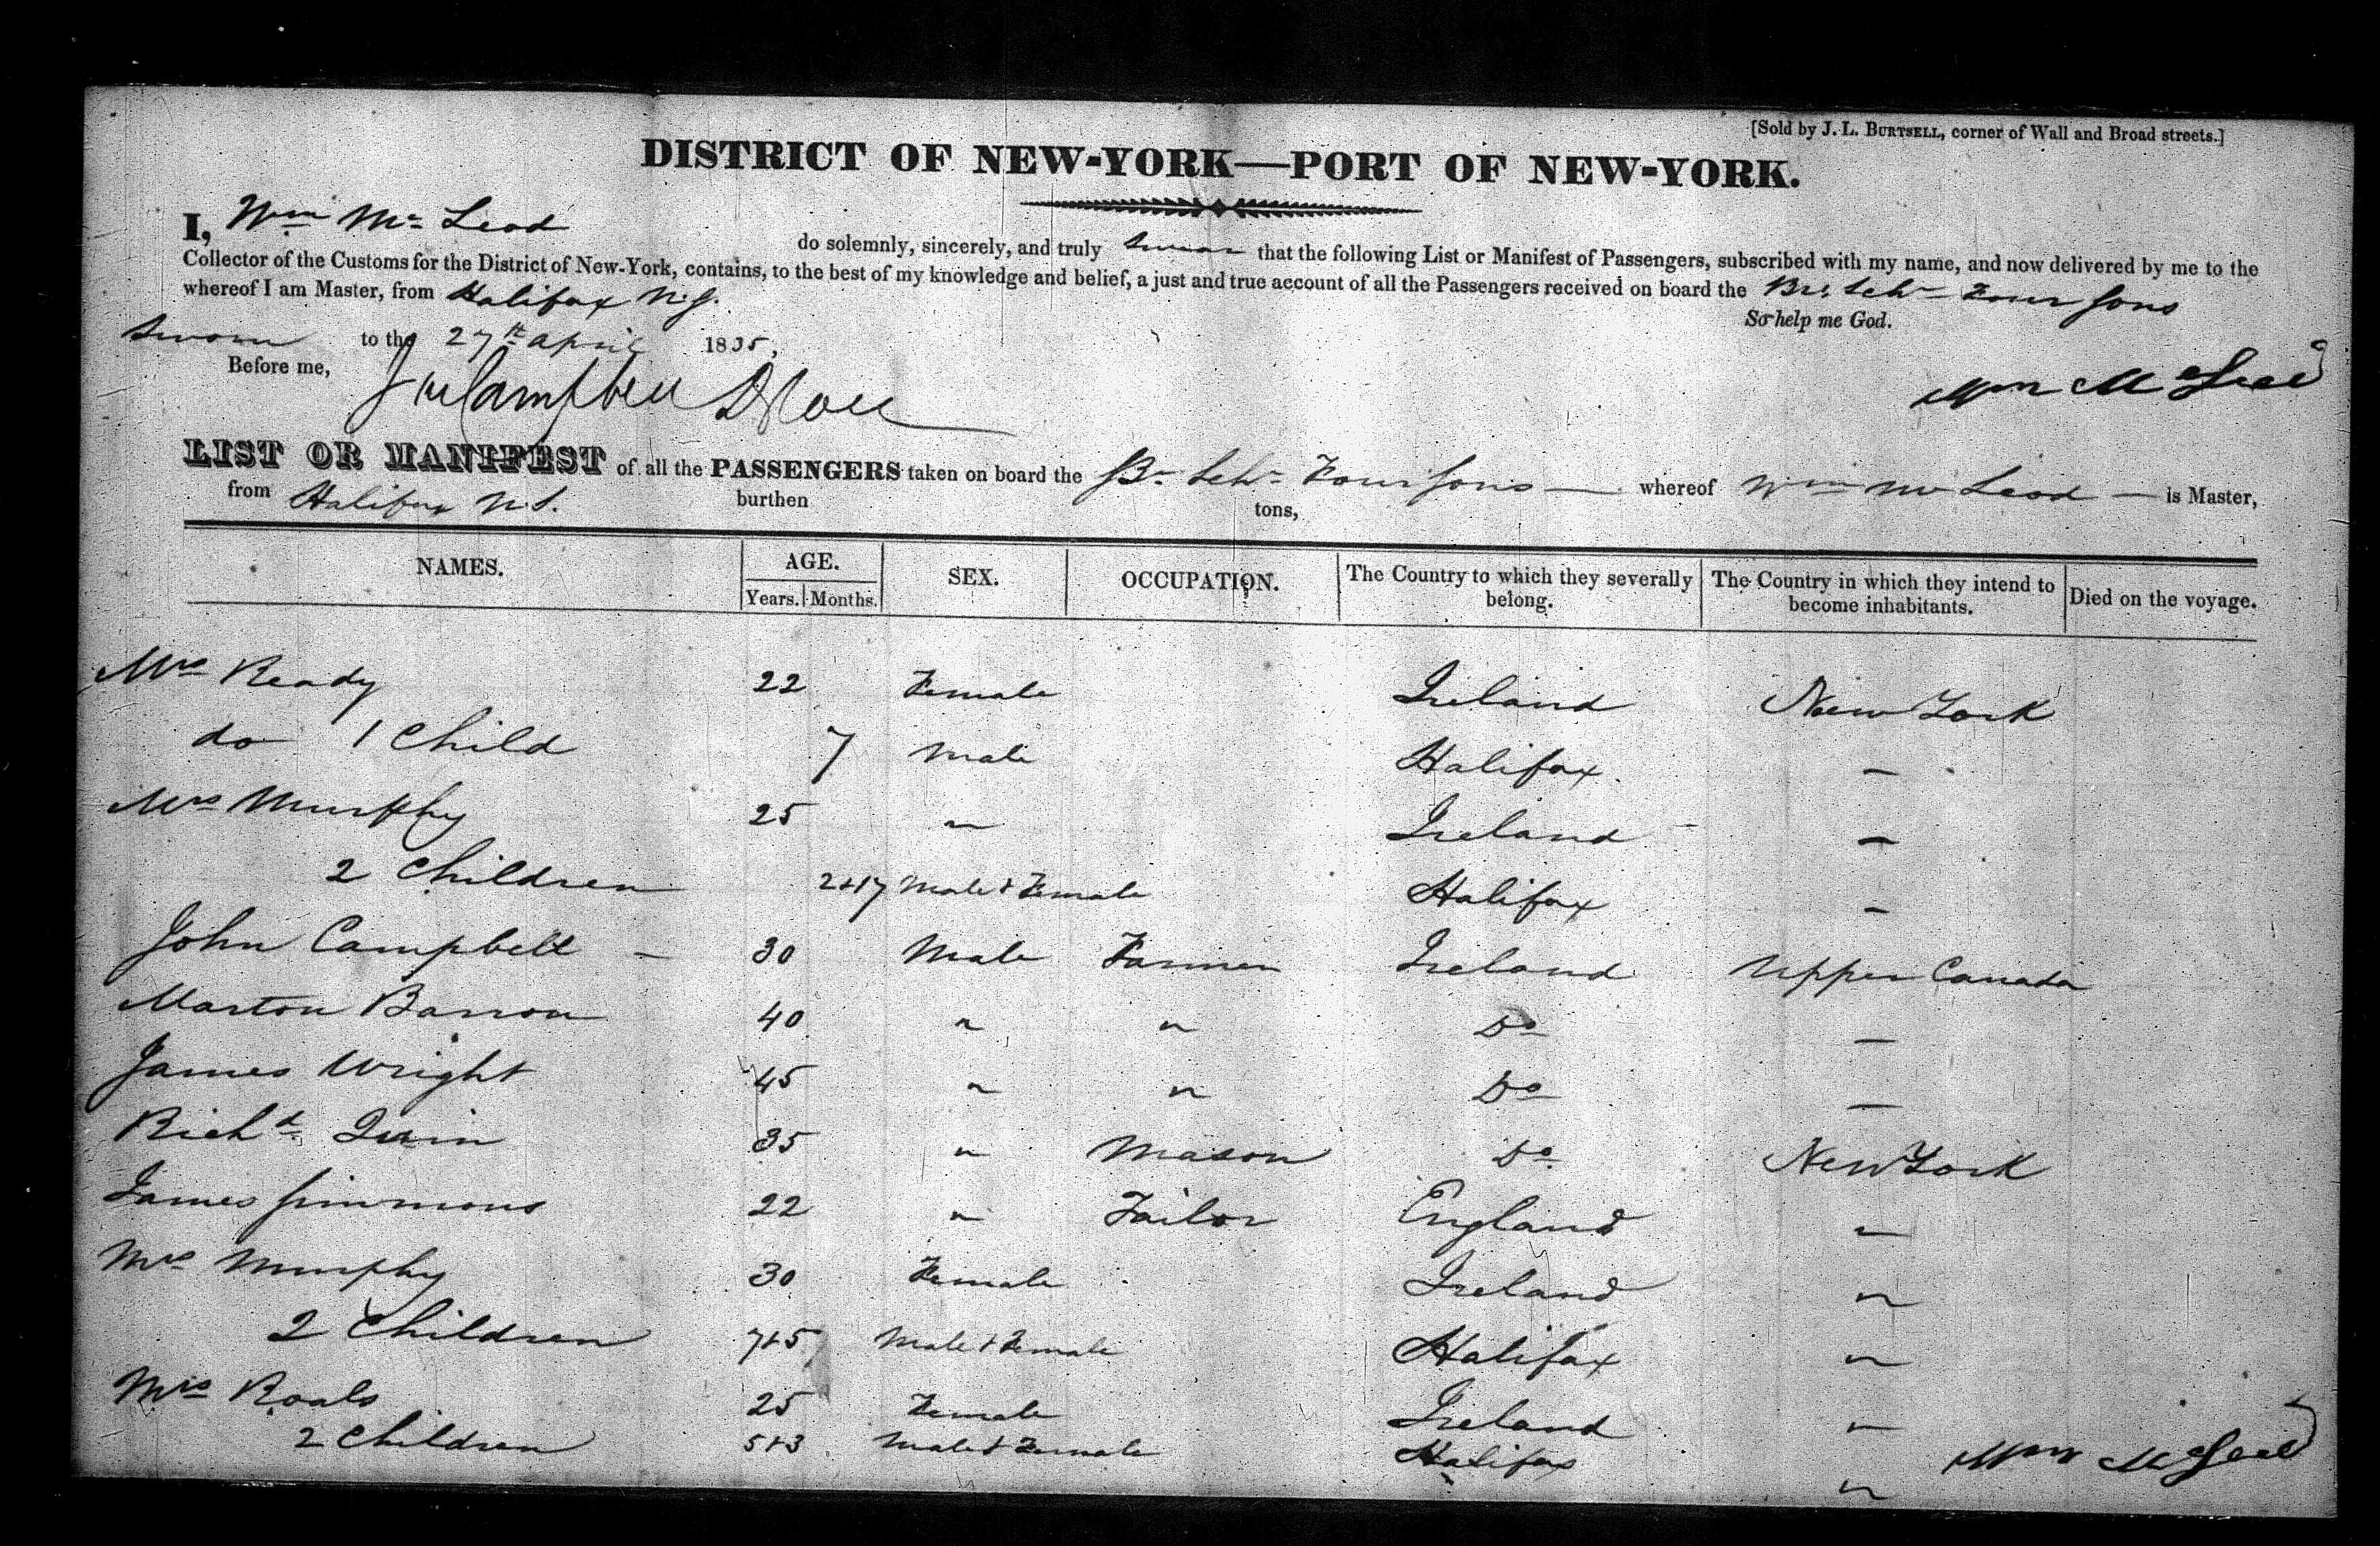 [Sold by J. L. BURTSELL, corner of Wall and Broad streets.]
DISTRICT OF NEW-YORK—PORT OF NEW-YORK.
I, Wm Mc Leod do solemnly, sincerely, and truly swear that the following List or Manifest of Passengers, subscribed with my name, and now delivered by me to the
Collector of the Customs for the District of New-York, contains, to the best of my knowledge and belief, a just and true account of all the Passengers received on board the Br. Schr Four Sons
whereof I am Master, from Halifax N.S.
So help me God.
Sworn to the 27th April 1835,
Before me,
Campbell
Wm McLeod
LIST OR MANIFEST of all the PASSENGERS taken on board the Br Schr Four Sons — whereof Wm Mc Leod — is Master,
from Halifax N.S. burthen tons,
NAMES. AGE. SEX. OCCUPATION. The Country to which they severally belong. The Country in which they intend to become inhabitants. Died on the voyage.
Years. Months.
Mrs Ready 22 Female Ireland New York
do 1 Child 7 Male Halifax —
Mrs Murphy 25 " Ireland —
2 Children 2+17 Male & Female Halifax —
John Campbell — 30 Male Farmer Ireland Upper Canada
Marton Barron 40 " " Do —
James Wright 45 " " Do —
Richd Quin 35 " Mason Do New York
James Simmons 22 " Tailor England "
Mrs Murphy 30 Female Ireland "
2 Children 7+5 Male & Female Halifax "
Mrs Roals 25 Female Ireland "
2 Children 5+3 Male & Female Halifax "
Wm McLeod